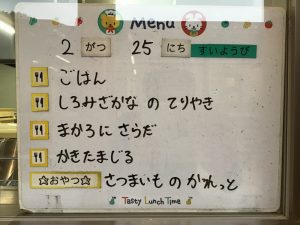 Menu
2 がつ 25 にち すいようび
ごはん
しろみざかな の てりやき
まかろに さらだ
かきたまじる
☆おやつ☆ さつまいも の かりんとう
Tasty Lunch Time